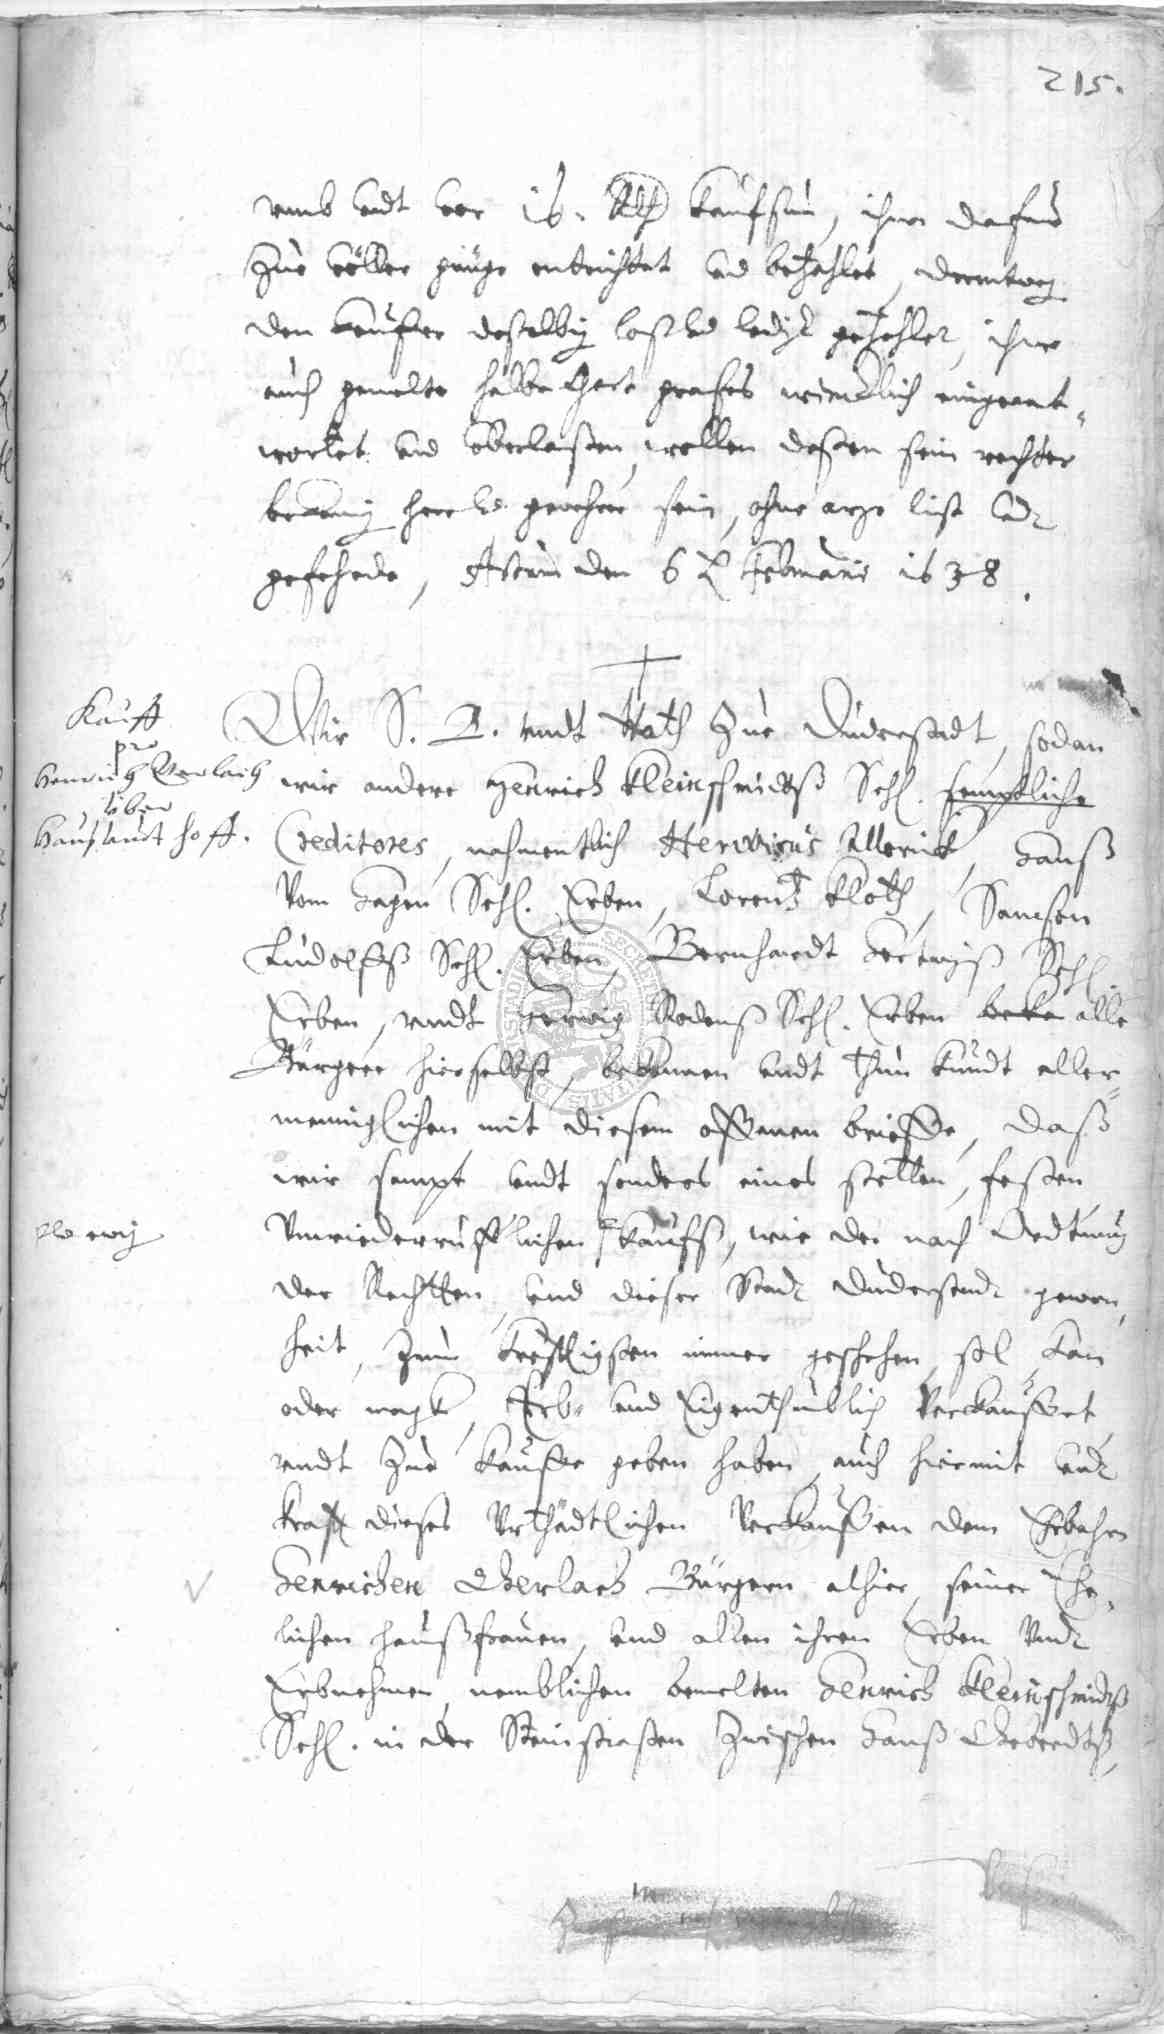 215.
umb undt vor 16. Rth kaufsum, ihnen dafur
zue völler gnüge entrichtet und bezahlet, derentweg
den keuffer deßelbig loß und ledigt gezehlet, ihme
auch gemelte halbe grases wircklich eingeant-
wortet und überlaßen, wollen deßen sein rechter
bekennig herr und gewehre sein, ohne arge list undt
gefehrde, Actum den 6 t Februarii 1638.
Kauff
pro
Henrich Gerlach
über
Hauß undt Hoff.
Wir S. A. undt Rath zue Duderstadt, sodan
wir andere Henrich Kleinschmidtß Sehl. semptliche
Creditores, nahmentlich Herwicus Allerick, Hanß
Vom Hagen Sehl. Erben, Lorentz Kloth, Samson
Ludolffß Sehl. Erben, Bernhardt Hertwigß Sehl.
Erben, undt Herwig Rodenß Sehl. Erben alle
Bürgere hierselbst, bekennen undt thun kundt aller-
menniglichen mit diesem offenen brieffe, daß
wir sampt undt sonders eines stetten, festen,
ewig
Unwiederrufflichen kauffß, wie der nach Ordtnung
der Rechtten, und dieser Stadt Duderstadt gewon-
heit, zum kreftigsten immer geschehen sol kan
oder magk, Erb- und Eigenthümblich Verkauffet,
undt zue kauffe geben haben, auch hiermit undt
krafft dieses Urthädtlichen Verkauffen dem Erbahren
Henrichen Gerlach Bürgern alhier, seiner Ehe-
lichen haußfrauen, und allen ihren Erben Undt
Erbnehmen, nemblichen bemelten Henrich Kleinschmidtß
Sehl. in der Steinstraßen zwischen Hanß Geberdtß,